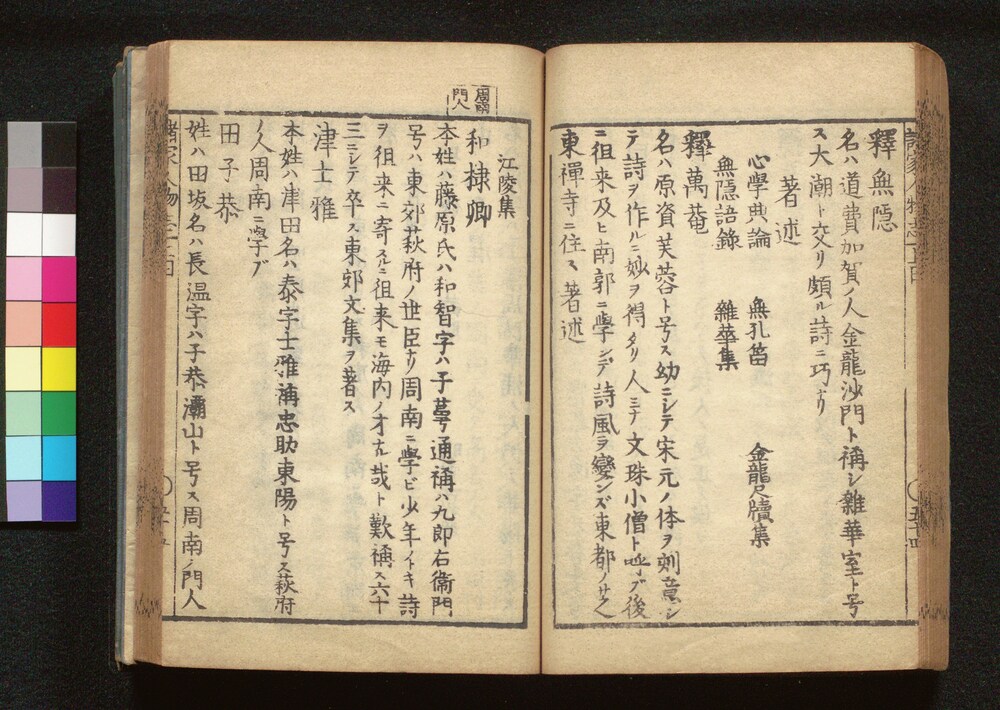 釋無隠
名ハ道費加賀ノ人金龍沙門ト稱シ雜華室ト号
ス大潮ト交リ頗ル詩ニ巧ナリ
著述
心學典論　無孔笛　金龍尺牘集
無隠語錄　雜華集
釋萬菴
名ハ原資芙蓉ト号ス幼ニシテ宋元ノ体ヲ刻意シ
テ詩ヲ作ルニ妙ヲ得タリ人ミナ文珠小僧ト呼ブ後
ニ祖来及ヒ南郭ニ學ンデ詩風ヲ變ンズ東都ノ
東禪寺ニ住ス著述
江陵集
周南門人
和棣卿
本姓ハ藤原氏ハ和智字ハ子萼通稱ハ九郎右衞門
号ハ東郊萩府ノ世臣ナリ周南ニ學ビ少年イトキ詩
ヲ徂来ニ寄スルニ徂来モ海内ノ才ナル哉ト歎稱ス六十
三ニシテ卒ス東郊文集ヲ著ス
津士雅
本姓ハ津田名ハ泰字士雅稱忠助東陽ト号ス萩府
ノ人周南ニ學ブ
田子恭
姓ハ田坂名ハ長温字ハ子恭灞山ト号ス周南ノ門人